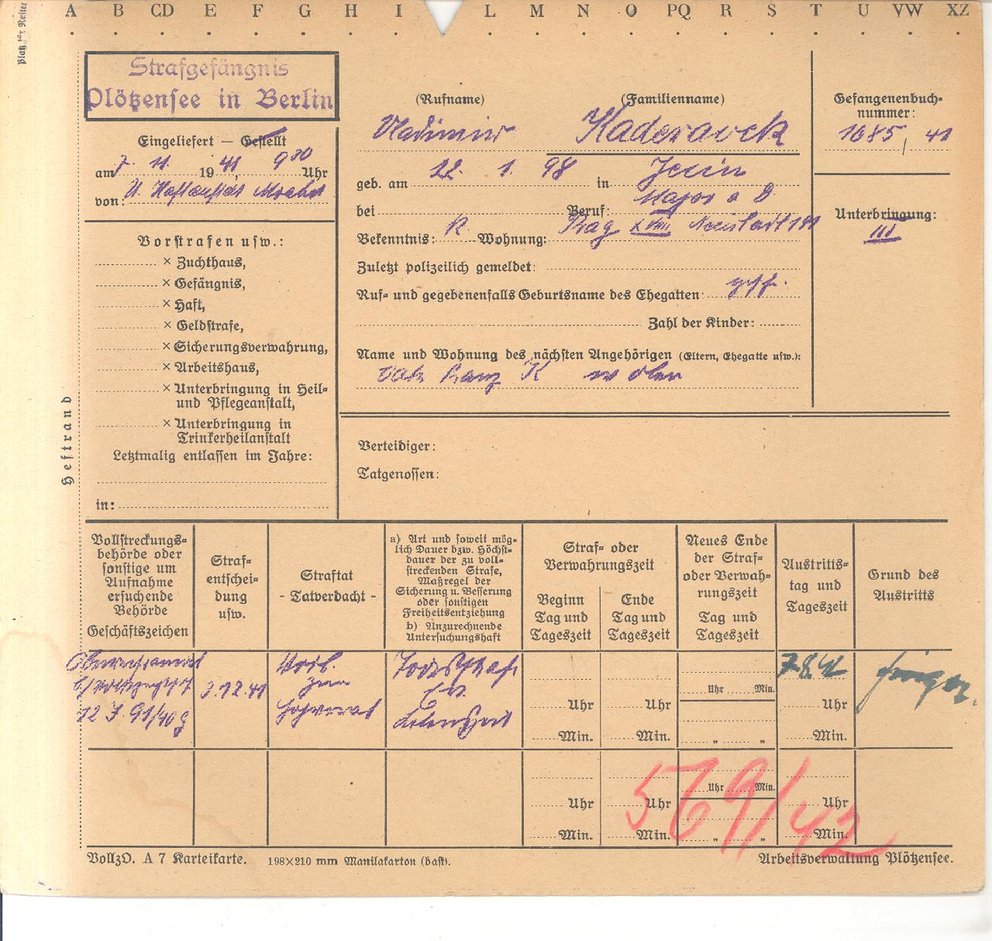 A B CD E F G H I L M N O PQ R S T U VW XZ
Strafgefängnis
Plötzensee in Berlin
Eingeliefert — Gestellt
am 7. 11. 1941, 9 30 Uhr
von:
(Rufname)
(Familienname)
Vladimir
geb. am 22. 1. 98 in
bei Beruf: Major a D
Bekenntnis: R. Wohnung: Prag Neustadt
Zuletzt polizeilich gemeldet:
Ruf- und gegebenenfalls Geburtsname des Ehegatten:
Zahl der Kinder:
Name und Wohnung des nächsten Angehörigen (Eltern, Ehegatte usw.):
Vater Franz K
Gefangenenbuch-
nummer:
1685, 41
Unterbringung:
III
Vorstrafen usw.:
× Zuchthaus,
× Gefängnis,
× Haft,
× Geldstrafe,
× Sicherungsverwahrung,
× Arbeitshaus,
× Unterbringung in Heil-
und Pflegeanstalt,
× Unterbringung in
Trinkerheilanstalt
Letztmalig entlassen im Jahre:
in:
Heftrand
Verteidiger:
Tatgenossen:
Vollstreckungs-
behörde oder
sonstige um
Aufnahme
ersuchende
Behörde
Geschäftszeichen
Straf-
entschei-
dung
usw.
Straftat
- Tatverdacht -
a) Art und soweit mög-
lich Dauer bzw. Höchst-
dauer der zu voll-
streckenden Strafe,
Maßregel der
Sicherung u. Besserung
oder sonstigen
Freiheitsentziehung
b) Anzurechnende
Untersuchungshaft
Straf- oder
Verwahrungszeit
Beginn
Tag und
Tageszeit
Ende
Tag und
Tageszeit
Neues Ende
der Straf-
oder Verwah-
rungszeit
Tag und
Tageszeit
Austritts-
tag und
Tageszeit
Grund des
Austritts
Oberreichsanwalt
3.12.41
Vorb.
zum
Hochverrat
Todesstrafe
Ew.
Ehrverlust
Uhr
Min.
Uhr
Min.
Uhr Min.
" "
7.8.42
Uhr
Min.
Uhr
Min.
Uhr
Min.
Uhr Min.
" "
Uhr
Min.
569/42
VollzO. A 7 Karteikarte. 198×210 mm Manilakarton (haft). Arbeitsverwaltung Plötzensee.